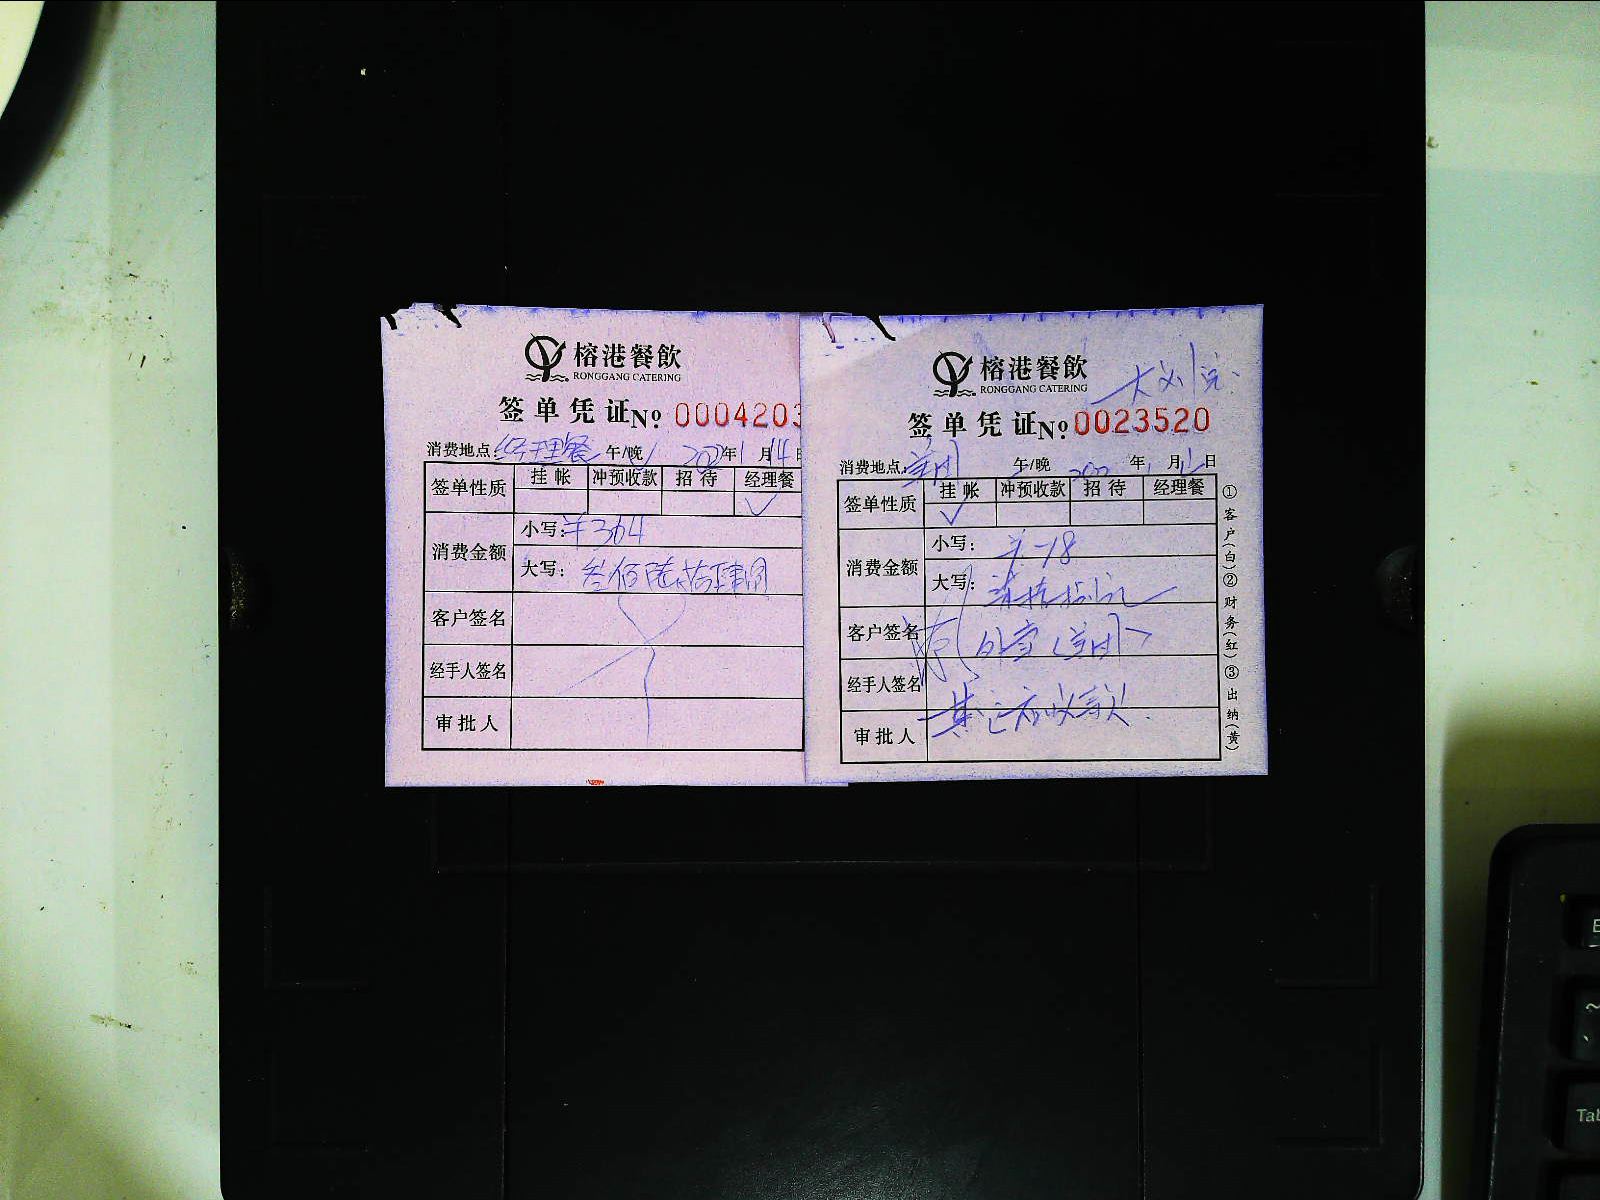 榕港餐飲
RONGGANG CATERING
签单凭证 No 0004203
消费地点: 经理餐 午/晚 年 1 月 14 日
签单性质 挂帐 冲预收款 招待 经理餐
✓
消费金额 小写: ¥364
大写: 叁佰陆拾肆圆
客户签名
经手人签名
审批人
榕港餐飲
RONGGANG CATERING
签单凭证 No 0023520
消费地点: 美团 午/晚 年 月 日
签单性质 挂帐 冲预收款 招待 经理餐
✓
消费金额 小写:
大写:
客户签名 外卖(美团)
经手人签名
其它应收款
审批人
①客户(白)②财务(红)③出纳(黄)
E
~
Tab